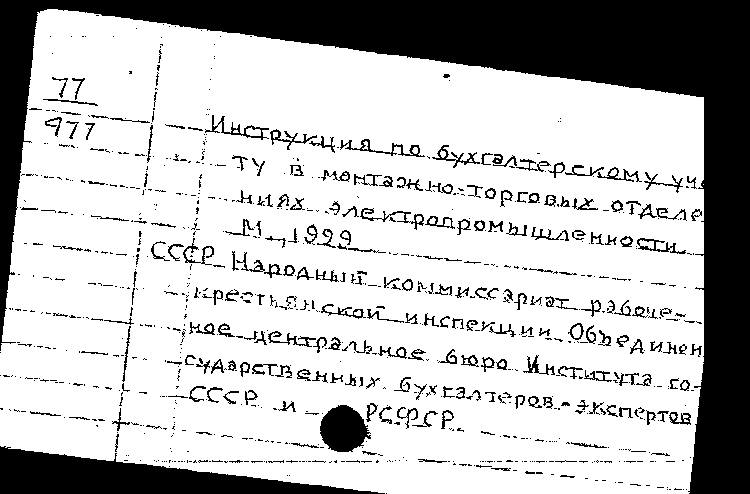 77
977
Инструкция по бухгалтерскому уче
ту в монтажно-торговых отделе
ниях электропромышленности
М., 1929
СССР Народный комиссариат рабоче-
крестьянской инспекции. Объединен
ное центральное бюро Института го-
сударственных бухгалтеров-экспертов
СССР и РСФСР.